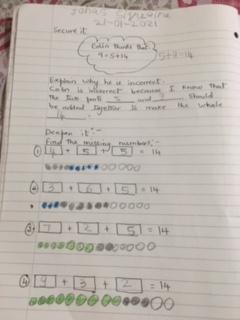 21-01-2021
Secure it
Colin thinks that
9=5+14
5+9=14
Explain why he is incorrect.
Colin is incorrect because, I know that
the two parts 5 and should
be added together to make the whole
14.
Deepen it:-
Find the missing numbers:-
① 4 + 5 + 5 = 14
② 3 + 6 + 5 = 14
③ 7 + 2 + 5 = 14
④ 9 + 3 + 2 = 14